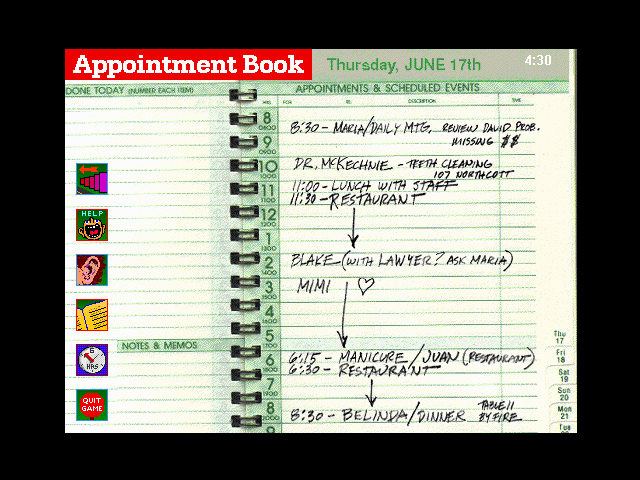 Appointment Book
Thursday, JUNE 17th
4:30
DONE TODAY (NUMBER EACH ITEM)
APPOINTMENTS & SCHEDULED EVENTS
HRS. FOR RE. DESCRIPTION TIME
8 0800
8:30 - MARIA/DAILY MTG. REVIEW DAVID PROB.
MISSING $$
9 0900
10 1000
DR. McKECHNIE - TEETH CLEANING
107 NORTHCOTT
11 1100
11:00 - LUNCH WITH STAFF
11:30 - RESTAURANT
HELP
12 1200
1 1300
2 1400
BLAKE (WITH LAWYER? ASK MARIA)
3 1500
MIMI ♡
4 1600
5 1700
NOTES & MEMOS
6 HRS
6 1800
6:15 - MANICURE / JUAN (RESTAURANT)
6:30 - RESTAURANT
7 1900
8 2000
8:30 - BELINDA/DINNER TABLE 11
BY FIRE
9
QUIT
GAME
Thu
17
Fri
18
Sat
19
Sun
20
Mon
21
Tue